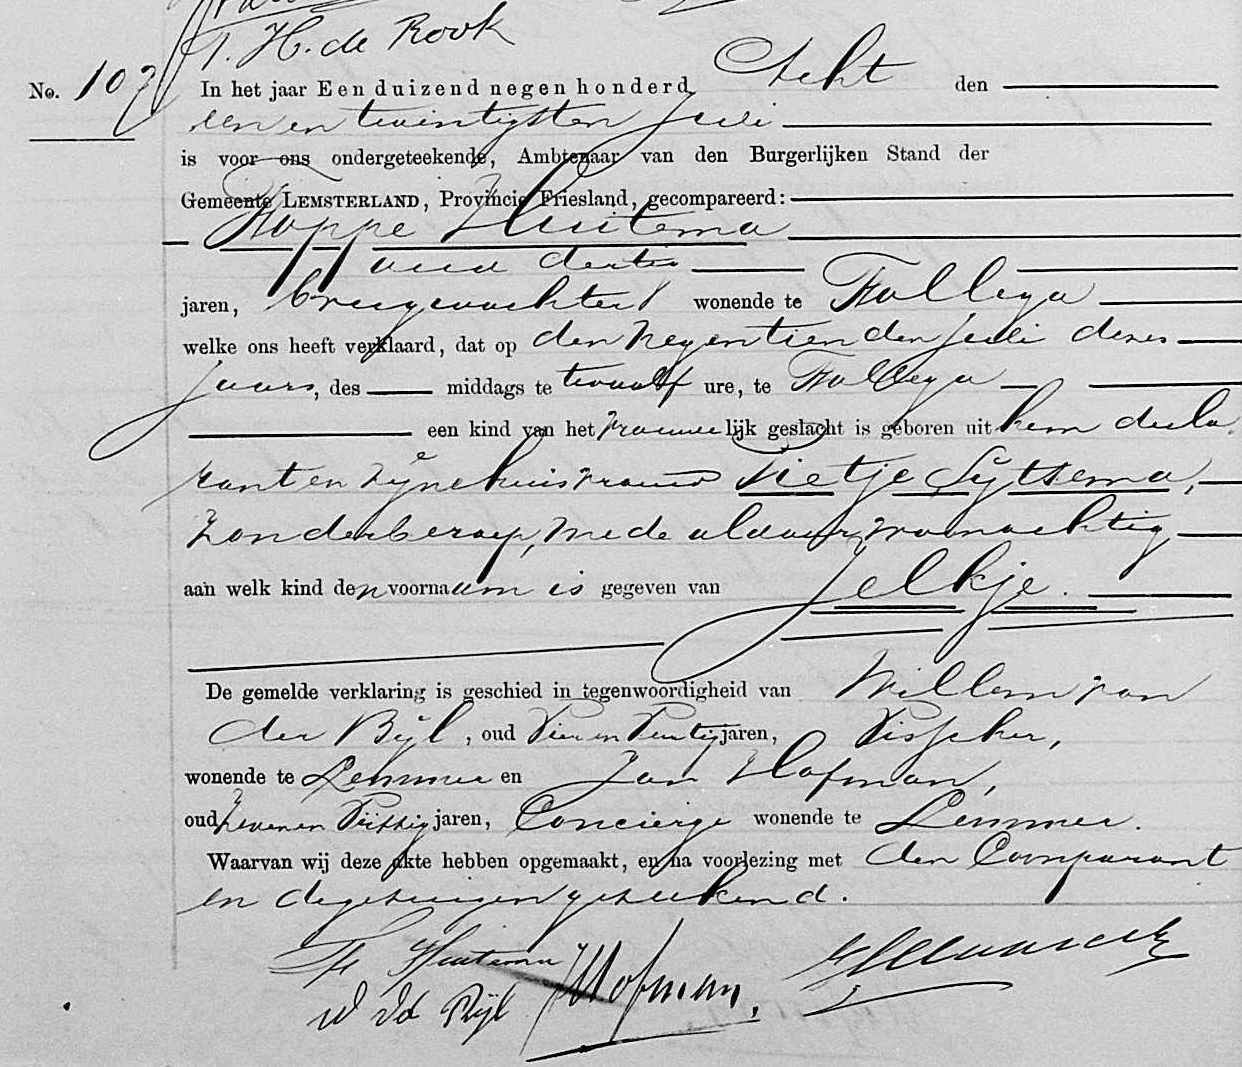 T. H. de Rook
No. 107
In het jaar Een duizend negen honderd Acht den
een en twintigsten Juli
is voor ons ondergeteekende, Ambtenaar van den Burgerlijken Stand der
Gemeente LEMSTERLAND, Provincie Friesland, gecompareerd:
Foppe Huitema
oud dertig
jaren, brugwachter wonende te Follega
welke ons heeft verklaard, dat op den negentienden Juli dezes
jaars, des middags te twaalf ure, te Follega
een kind van het vrouwelijk geslacht is geboren uit hem decla
rant en zijne huisvrouw Tietje Sijtsema,
zonder beroep, mede aldaar woonachtig
aan welk kind den voornaam is gegeven van Jelkje.
De gemelde verklaring is geschied in tegenwoordigheid van Willem van
der Bijl, oud Vier en Veertig jaren, Visscher,
wonende te Lemmer en Jan Hofman,
oud Zeven en Vijftig jaren, Concierge wonende te Lemmer.
Waarvan wij deze akte hebben opgemaakt, en na voorlezing met den Comparant
en de getuigen geteekend.
F Huitema
W vd Bijl JHofman,